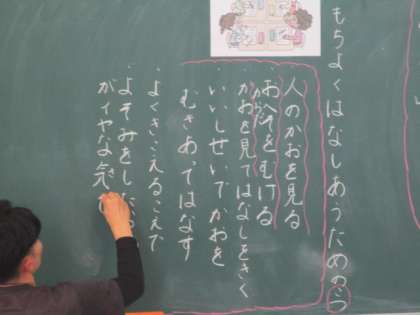 もちよくはなしあうためのこつ
・人のかおを見る
・おへそをむける
からだ
・かおを見てはなしをきく
・いいしせいでかおを
むきあってはなす
・よくきこえるこえで
・よそみをした
がイヤな気